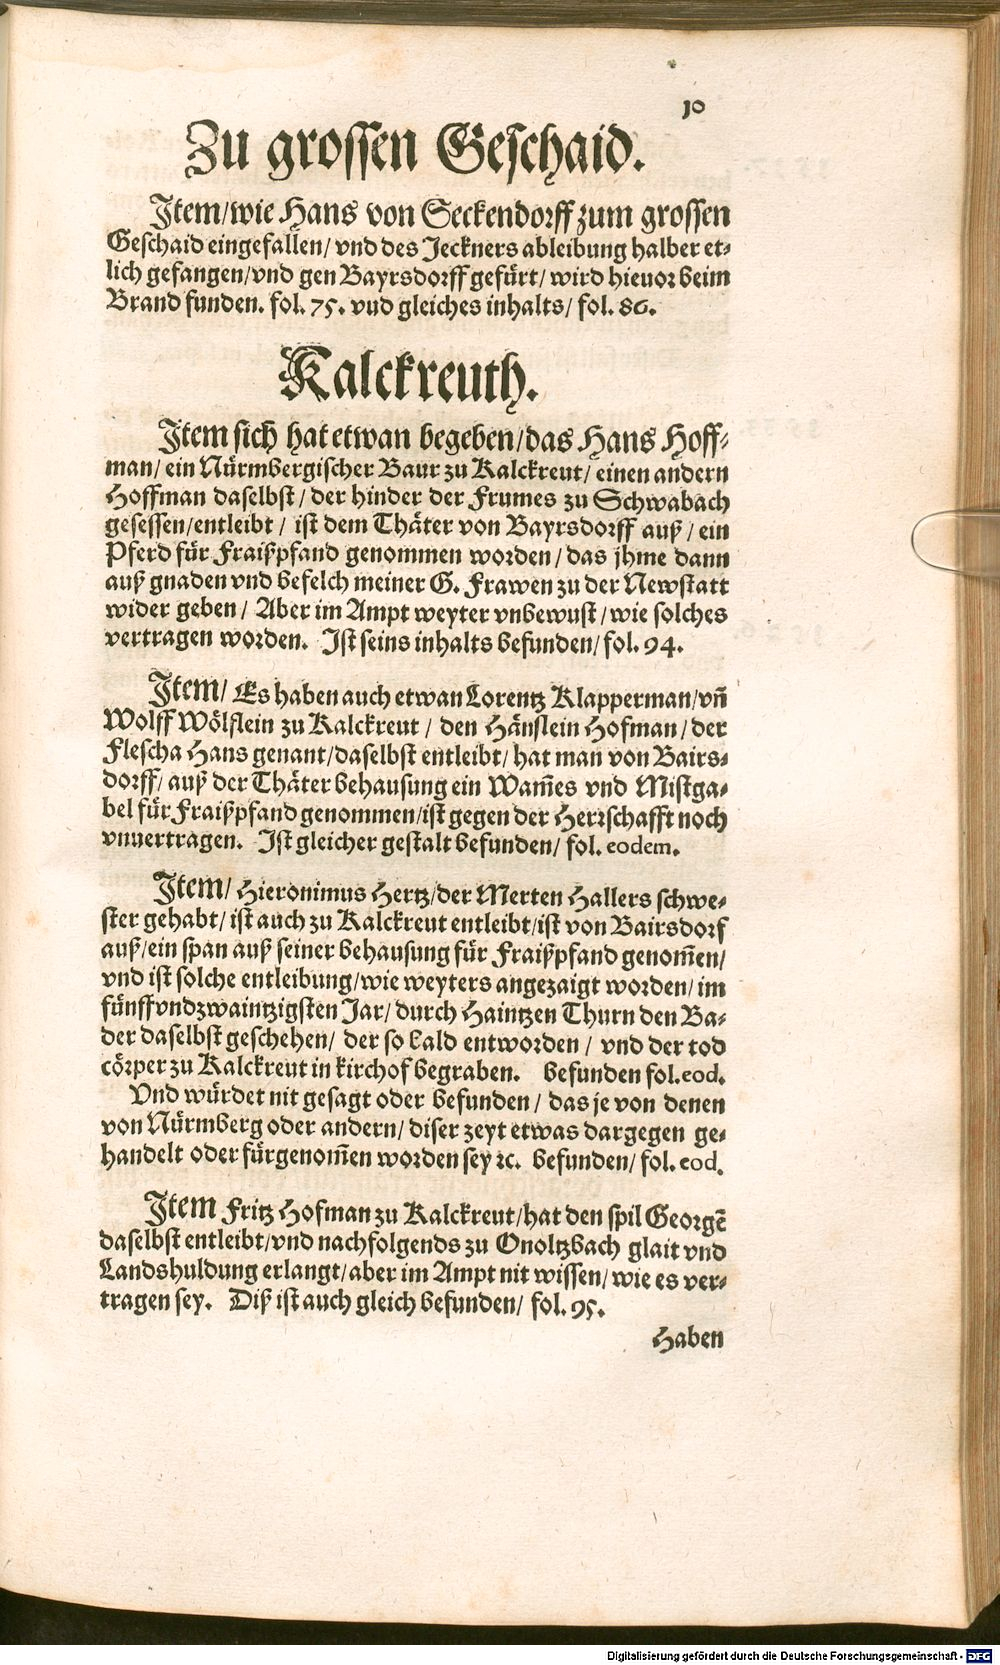 10
Zu grossen Geschaid.
Item/wie Hans von Seckendorff zum grossen
Geschaid eingefallen/ vnd des Jeckners ableibung halber et-
lich gefangen/vnd gen Bayrsdorff gefürt/ wird hieuor beim
Brand funden. fol. 75. vnd gleiches inhalts/ fol. 86.
Kalckreuth.
Item sich hat etwan begeben/das Hans Hoff-
man/ ein Nürmbergischer Baur zu Kalckreut/ einen andern
Hoffman daselbst/ der hinder der Frumes zu Schwabach
gesessen/entleibt/ ist dem Thäter von Bayrsdorff auß/ ein
Pferd für Fraißpfand genommen worden/ das jhme dann
auß gnaden vnd befelch meiner G. Frawen zu der Newstatt
wider geben/ Aber im Ampt weyter vnbewust/ wie solches
vertragen worden. Ist seins inhalts befunden/ fol. 94.
Item/ Es haben auch etwan Lorentz Klapperman/vñ
Wolff Wölflein zu Kalckreut/ den Hänslein Hofman/ der
Flescha Hans genant/daselbst entleibt/ hat man von Bairs-
dorff/ auß der Thäter behausung ein Wam̃es vnd Mistga-
bel für Fraißpfand genommen/ist gegen der Herrschafft noch
vnuertragen. Ist gleicher gestalt befunden/ fol. eodem.
Item/ Hieronimus Hertz/der Merten Hallers schwe-
ster gehabt/ ist auch zu Kalckreut entleibt/ist von Bairsdorf
auß/ein span auß seiner behausung für Fraißpfand genom̃en/
vnd ist solche entleibung/wie weyters angezaigt worden/ im
fünffvndzwaintzigsten Jar/ durch Haintzen Thurn den Ba-
der daselbst geschehen/ der so bald entworden/ vnd der tod
cörper zu Kalckreut in kirchof begraben. befunden fol. eod.
Vnd würdet nit gesagt oder befunden/ das je von denen
von Nürmberg oder andern/ diser zeyt etwas dargegen ge-
handelt oder fürgenom̃en worden sey ꝛc. befunden/ fol. eod.
Item Fritz Hofman zu Kalckreut/hat den spil Georgē
daselbst entleibt/vnd nachfolgends zu Onoltzbach glait vnd
Landshuldung erlangt/aber im Ampt nit wissen/ wie es ver-
tragen sey. Diß ist auch gleich befunden/ fol. 95.
Haben
Digitalisierung gefördert durch die Deutsche Forschungsgemeinschaft - DFG